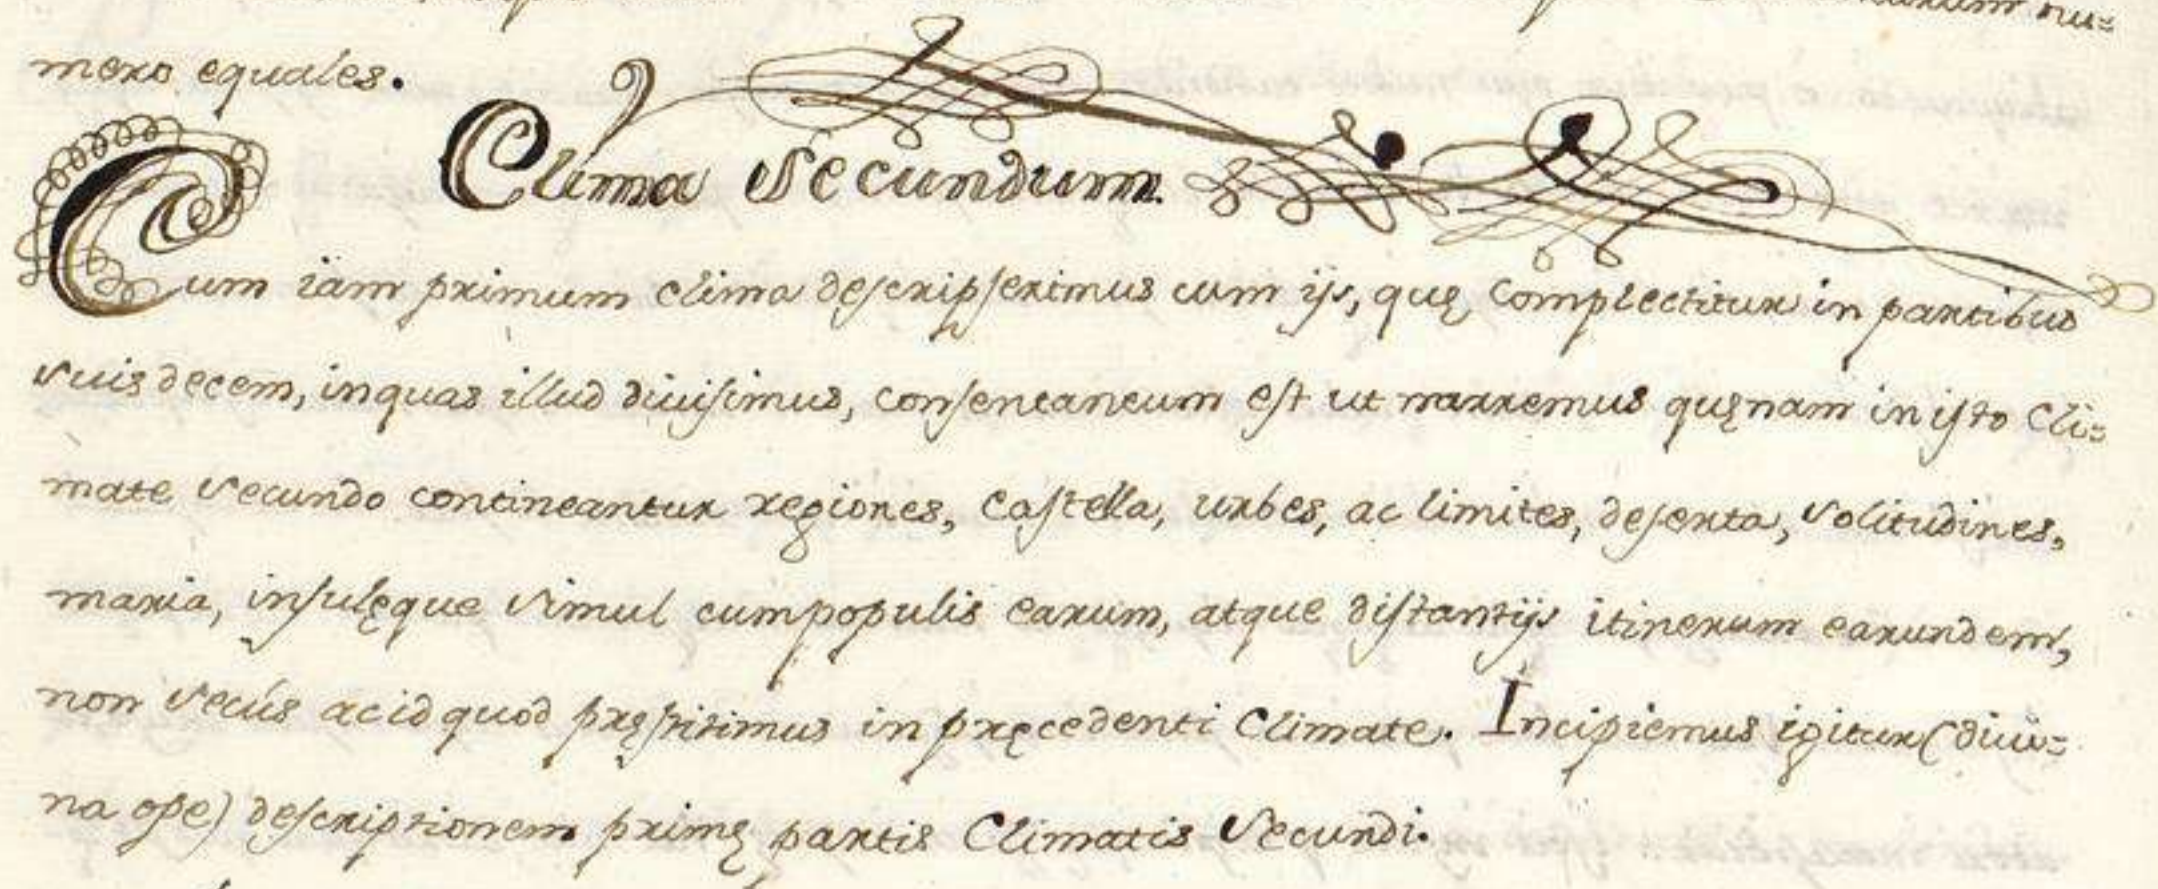 nu=
mero equales.
Clima Secundum.
Cum iam primum clima descripserimus cum ijs, quę complectitur in partibus
suis decem, in quas illud diuisimus, consentaneum est ut narremus quęnam in isto Cli=
mate secundo contineantur regiones, castella, urbes, ac limites, deserta, solitudines,
maria, insulęque simul cum populis earum, atque distantijs itinerum earundem,
non secús ac id quod pręstitimus in pręcedenti Climate. Incipiemus igitur (diui=
na ope) descriptionem primę partis Climatis Secundi.